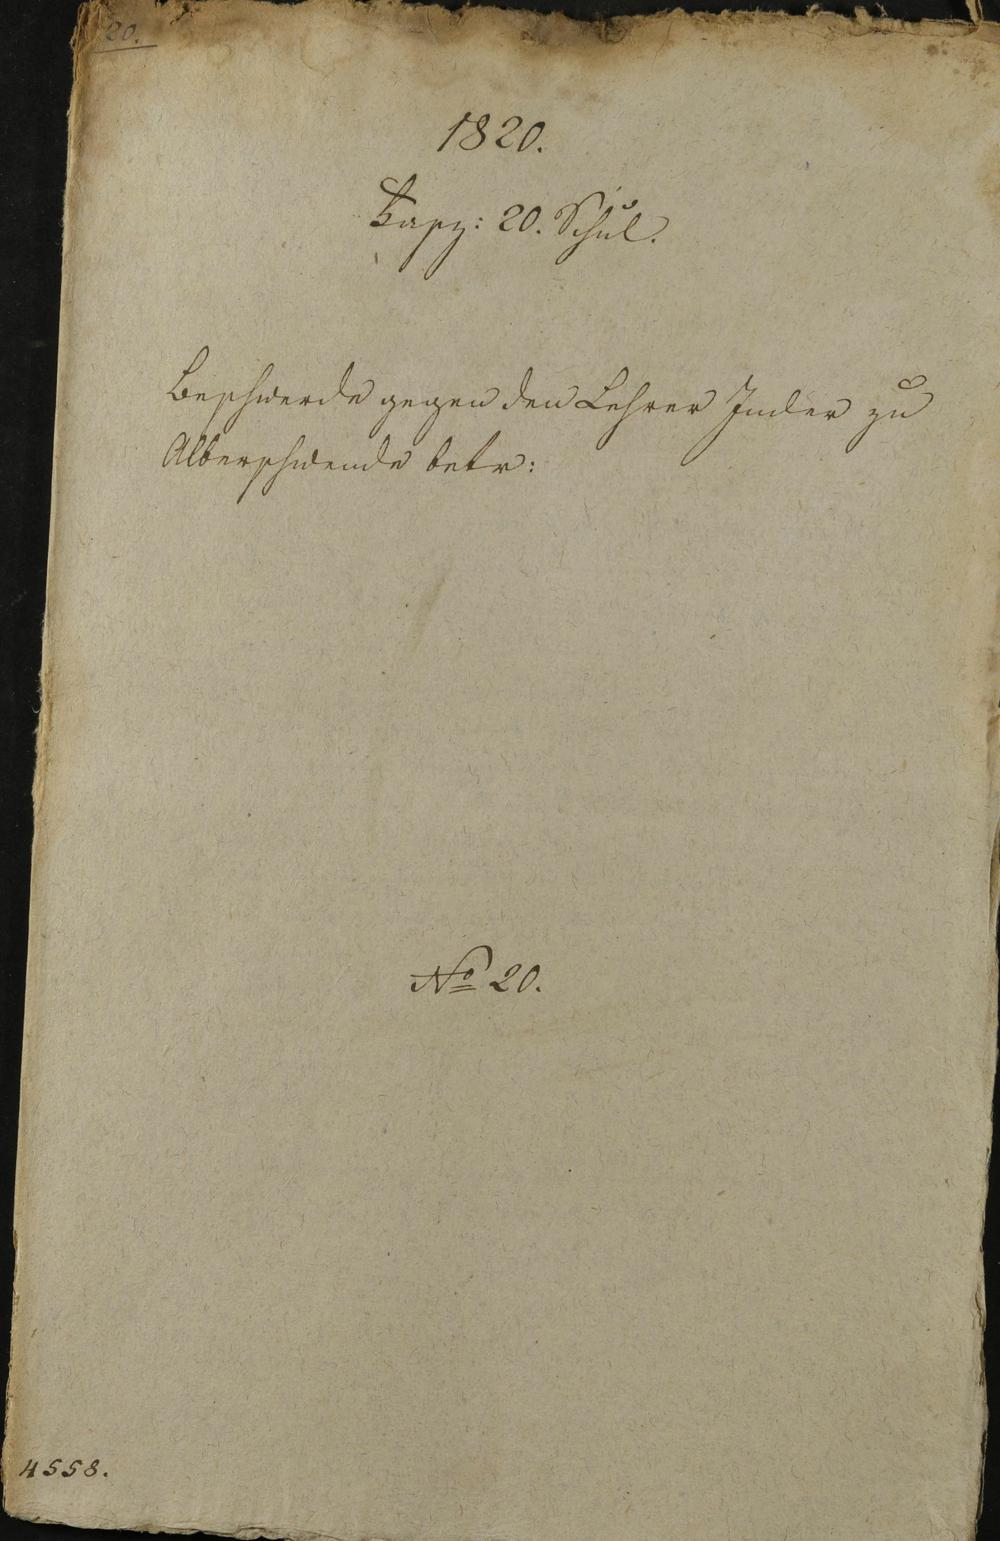 20.
1820.
Fasz: 20. Schul.
Beschwerde gegen den Lehrer zu
Alberschwende betr:
No 20.
4558.